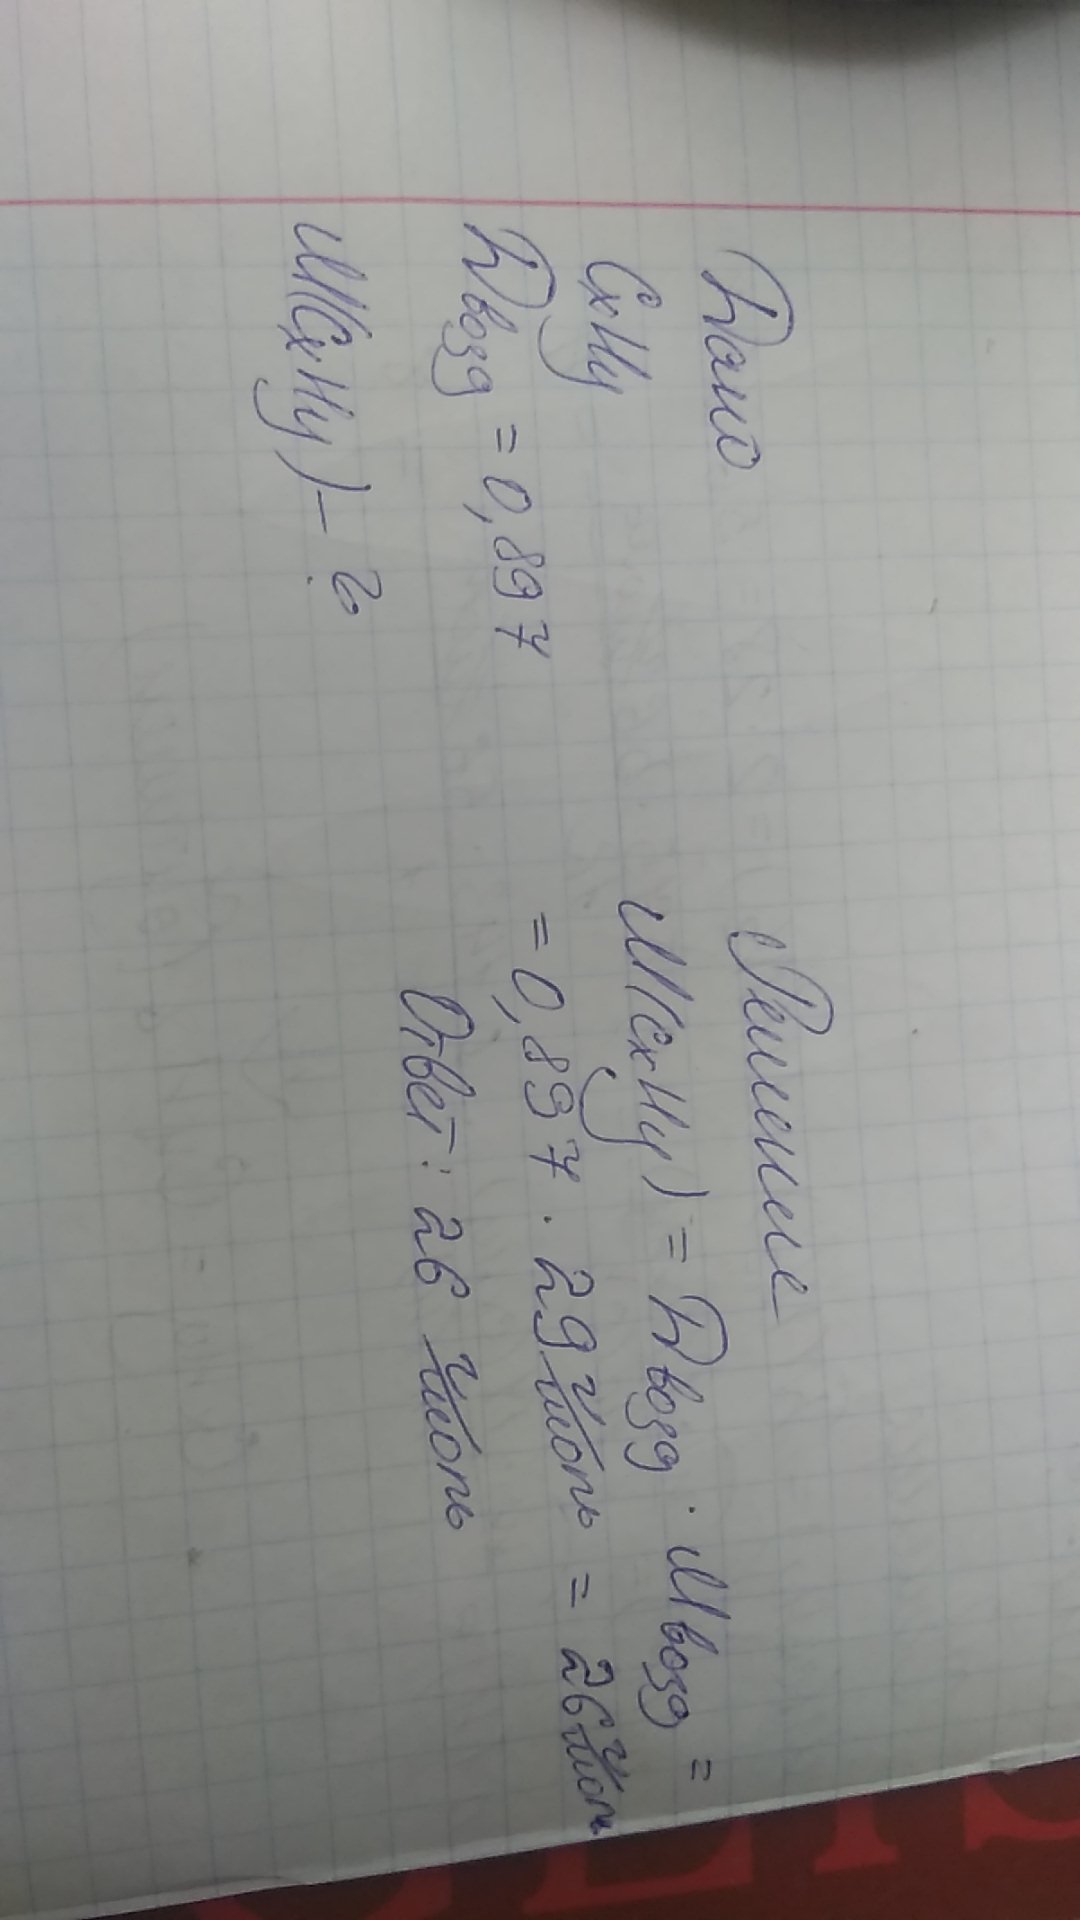 Дано
CxHy
Dвозд = 0,897
M(CxHy) - ?
Решение
M(CxHy) = Dвозд · Mвозд =
= 0,897 · 29 г/моль = 26 г/моль
Ответ: 26 г/моль